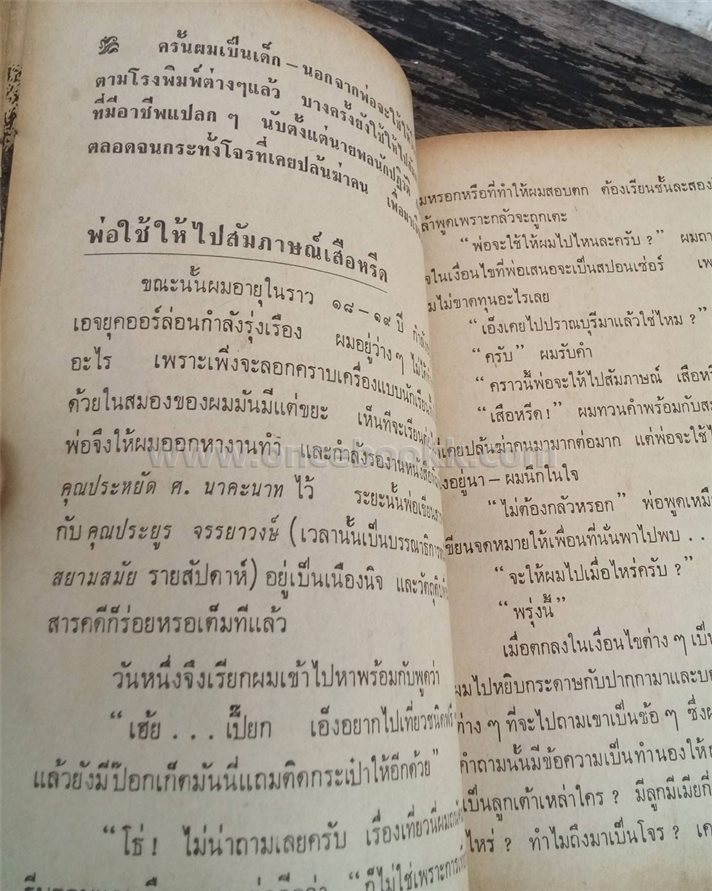 ครั้นผมเป็นเด็ก – นอกจากพ่อจะใช้ให้
ตามโรงพิมพ์ต่างๆแล้ว บางครั้งยังใช้ให้ไป
ที่มีอาชีพแปลก ๆ นับตั้งแต่นายพลนักปฏิวัติ
ตลอดจนกระทั่งโจรที่เคยปล้นฆ่าคน
พ่อใช้ให้ไปสัมภาษณ์เสือหรีด
ขณะนั้นผมอายุในราว ๑๘ – ๑๙ ปี
เอจยุคออร์ล่อนกำลังรุ่งเรือง ผมอยู่ว่าง ๆ
อะไร เพราะเพิ่งจะลอกคราบเครื่องแบบนักเรียน
ด้วยในสมองของผมมันมีแต่ขยะ เห็นที่จะเรียน
พ่อจึงให้ผมออกหางานทำ และกำลังรองานหนังสือ
คุณประหยัด ศ. นาคะนาท ไว้ ระยะนั้นพ่อเขียน
กับ คุณประยูร จรรยาวงษ์ (เวลานั้นเป็นบรรณาธิการ
สยามสมัย รายสัปดาห์) อยู่เป็นเนืองนิจ และวัตถุดิบ
สารคดีก็ร่อยหรอเต็มทีแล้ว
วันหนึ่งจึงเรียกผมเข้าไปหาพร้อมกับพูดว่า
“เฮ้ย . . . เปี๊ยก เอ็งอยากไปเที่ยวชนิดฟรี
แล้วยังมีป๊อกเก็ตมันนี่แถมติดกระเป๋าให้อีกด้วย”
“โธ่! ไม่น่าถามเลยครับ เรื่องเที่ยวนี่ผม
“ก็ไม่ใช่เพราะการ
มหรอกหรือที่ทำให้ผมสอบตก ต้องเรียนชั้นละสอง
ล้าพูดเพราะกลัวจะถูกเตะ
“พ่อจะใช้ให้ผมไปไหนละครับ ?” ผมถา
จในเงื่อนไขที่พ่อเสนอจะเป็นสปอนเซ่อร์
มไม่ขาดทุนอะไรเลย
“เอ็งเคยไปปราณบุรีมาแล้วใช่ไหม ?”
“ครับ” ผมรับคำ
“คราวนี้พ่อจะให้ไปสัมภาษณ์ เสือหรีด
“เสือหรีด!” ผมทวนคำพร้อมกับ
เคยปล้นฆ่าคนมามากต่อมาก แต่พ่อจะใช้
องอยู่นา – ผมนึกในใจ
“ไม่ต้องกลัวหรอก” พ่อพูดเหมือ
เขียนจดหมายให้เพื่อนที่นั่นพาไปพบ . .
“จะให้ผมไปเมื่อไหร่ครับ ?”
“พรุ่งนี้”
เมื่อตกลงในเงื่อนไขต่าง ๆ เป็น
ผมไปหยิบกระดาษกับปากกามาและบอ
ต่าง ๆ ที่จะไปถามเขาเป็นข้อ ๆ ซึ่ง
คำถามนั้นมีข้อความเป็นทำนองให้
เป็นลูกเต้าเหล่าใคร ? มีลูกมีเมียกี่
ไหร่ ? ทำไมถึงมาเป็นโจร ? เค